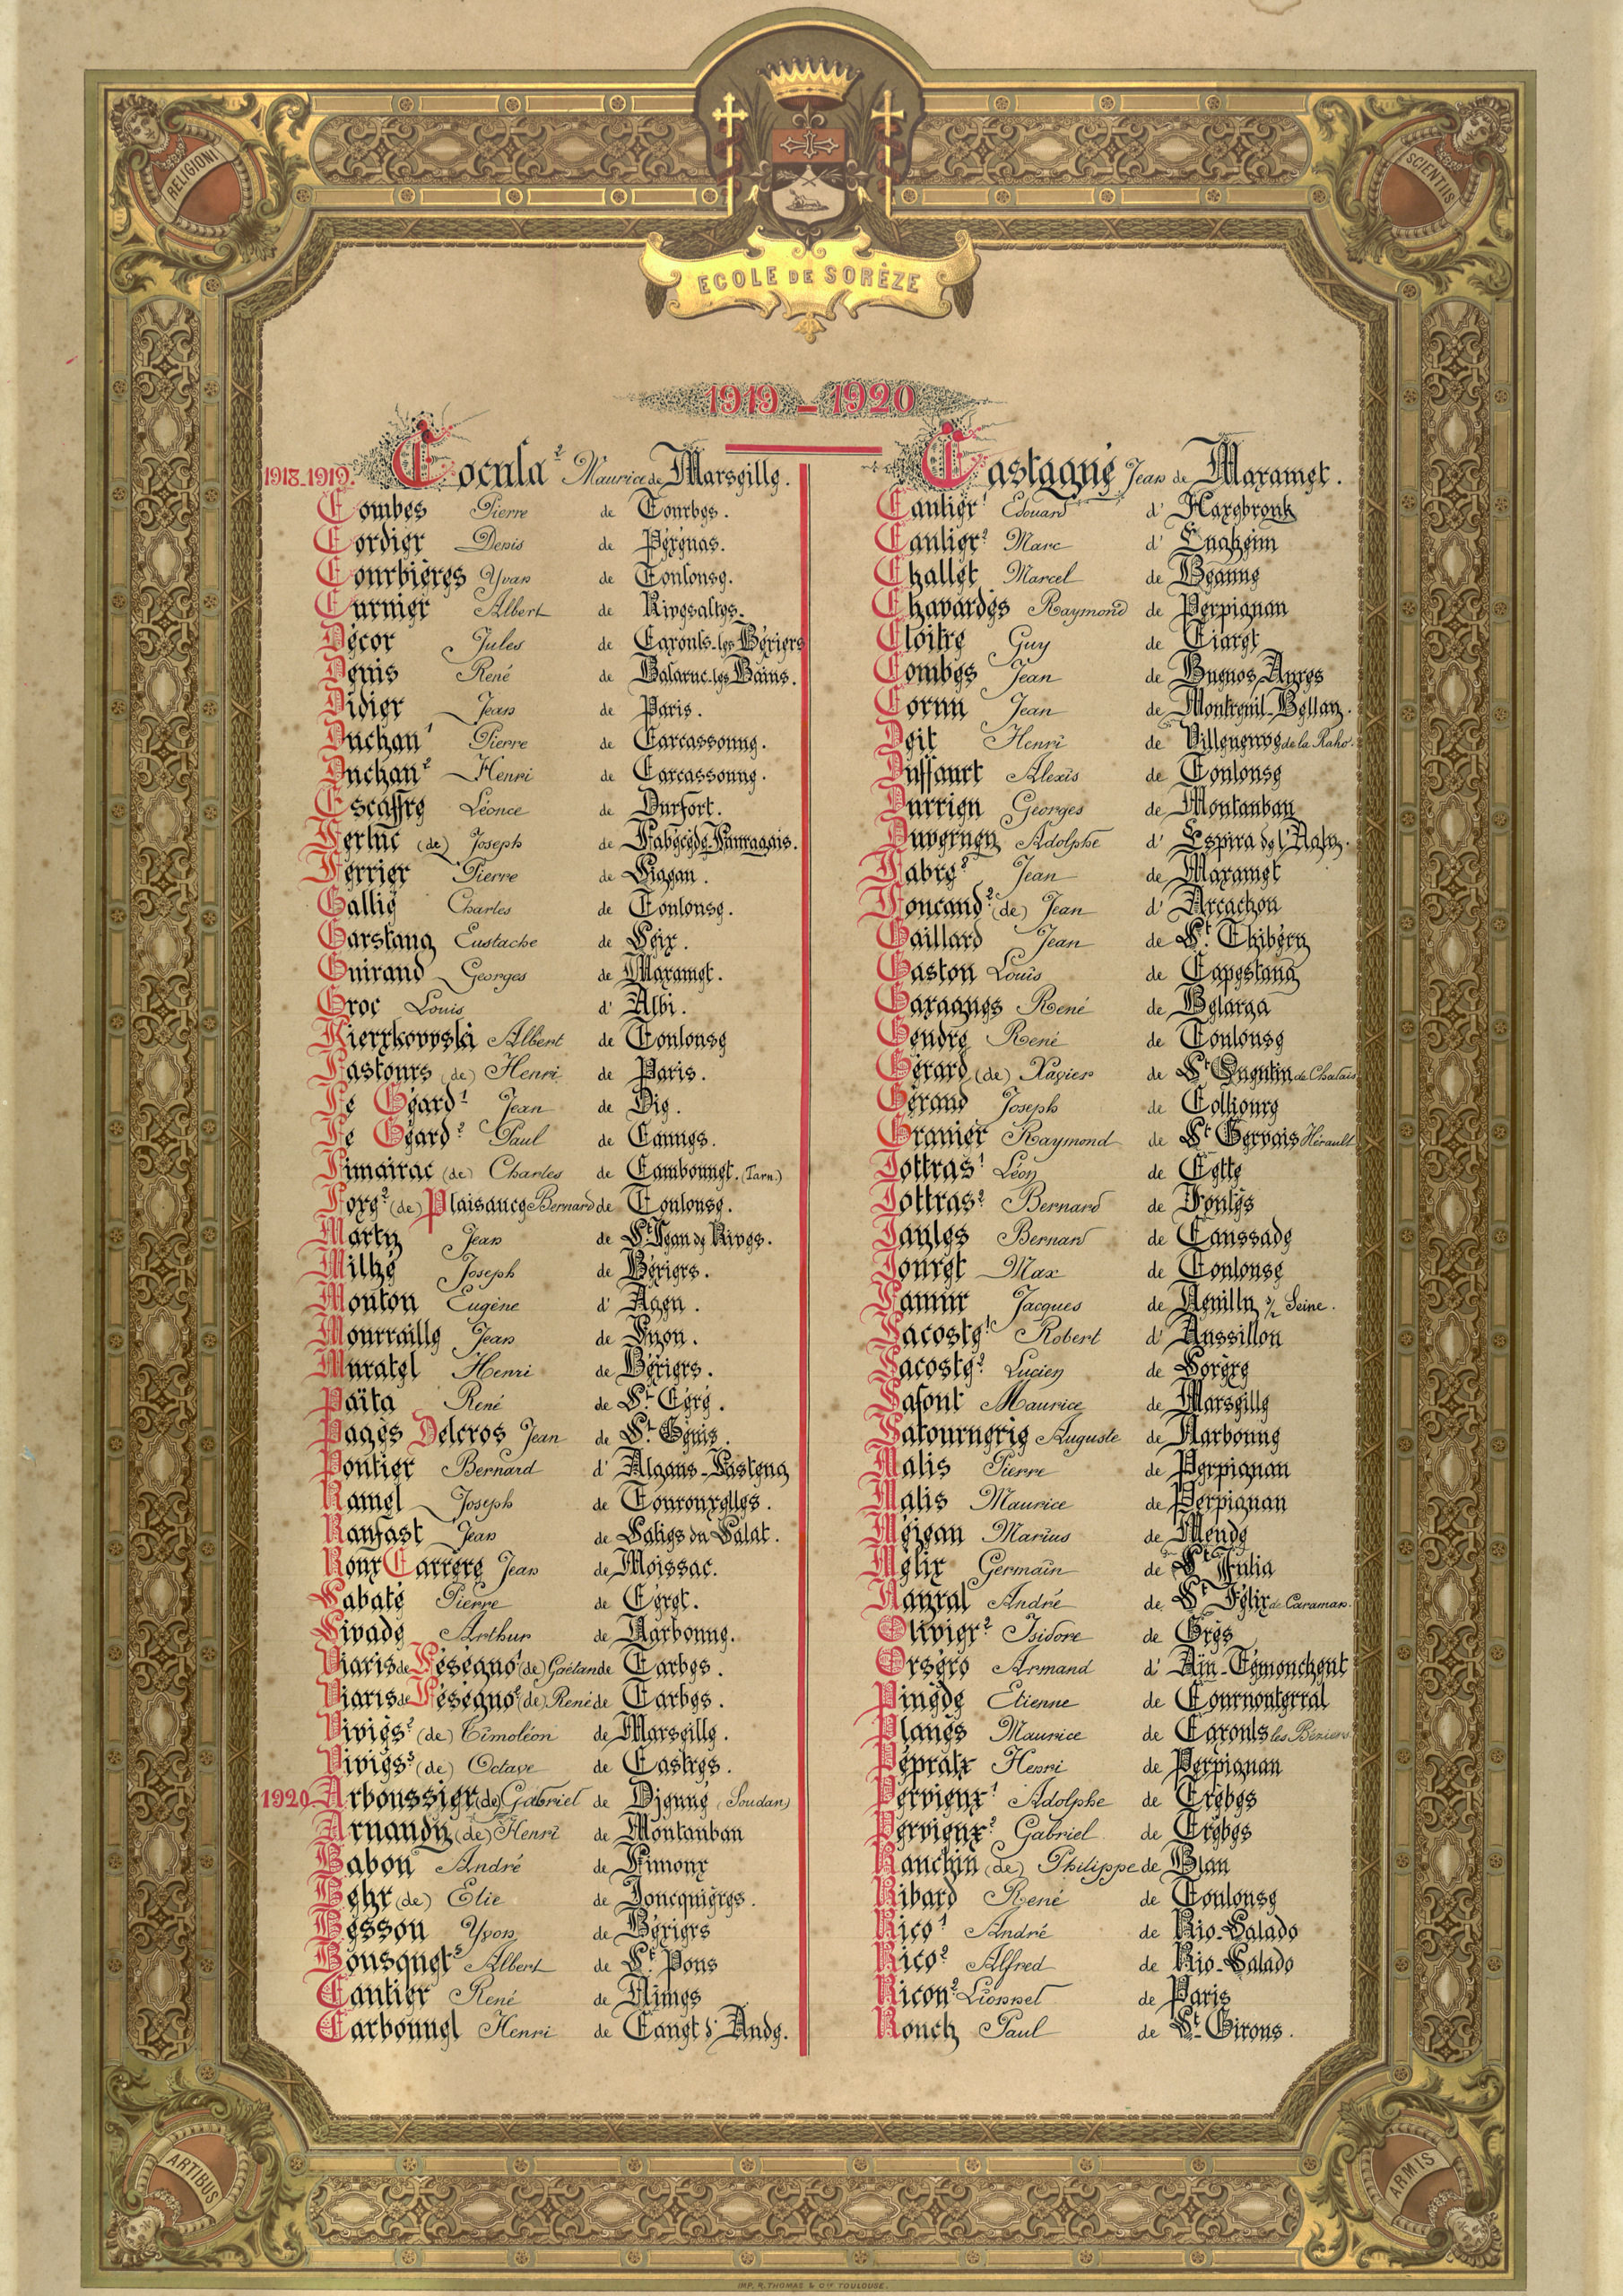 RELIGIONI
SCIENTIIS
ECOLE DE SORÈZE
1919 - 1920
1918-1919. Cocula² Maurice de Marseille.
Combes Pierre de Tourbes.
Cordier Denis de Pézénas.
Courbières Yvan de Toulouse.
Curnier Albert de Rivesaltes.
Décor Jules de Cazouls-les-Béziers
Denis René de Balaruc-les-Bains.
Didier Jean de Paris.
Duchan¹ Pierre de Carcassonne.
Duchan² Henri de Carcassonne.
Escaffre Léonce de Durfort.
Ferluc (de) Joseph de Labécède-Lauragais.
Ferrier Pierre de
Gallie Charles de Toulouse.
Garstang Eustache de Seix.
Guiraud Georges de Mazamet.
Groc Louis d' Albi.
Kierzkowski Albert de Toulouse
Lastours (de) Henri de Paris.
Le Géard¹ Jean de Die.
Le Géard² Paul de Caunes.
Limairac (de) Charles de Cambounet. (Tarn.)
Lorg² (de) Plaisance Bernard de Toulouse.
Marty Jean de St. Jean de Rives.
Milhé Joseph de Béziers.
Mouton Eugène d' Agen.
Mourraille Jean de Lyon.
Muratel Henri de Béziers.
Païta René de St. Céré.
Pagès Delcros Jean de St. Génis.
Pontier Bernard d' Algans-Lastens
Ramel Joseph de Tourouzelles.
Ranfast Jean de Salies du Salat.
Roux Carrère Jean de Moissac.
Sabaté Pierre de Céret.
Sivade Arthur de Narbonne.
Viaris de Léségno¹ (de) Gaëtan de Tarbes.
Viaris de Léségno² (de) René de Tarbes.
Viviès² (de) Timoléon de Marseille.
Viviès³ (de) Octave de Castres.
1920. Arboussier (de) Gabriel de Djenné (Soudan)
Arnaudy (de) Henri de Montauban
Babon André de Limoux
Behr (de) Elie de Joncquières.
Besson Yvon de Béziers
Bousquet² Albert de St. Pons
Cantier René de Nimes
Carbonnel Henri de Canet d' Aude.
Castagné Jean de Mazamet.
Cantier¹ Edouard d' Hazebrouk
Cantier² Marc d'
Challet Marcel de Beaune
Chavardès Raymond de Perpignan
Cloitre Guy de Tiaret
Combes Jean de Buenos Ayres
Cornu Jean de Montreuil-Bellay.
Deit Henri de Villeneuve de la Raho.
Duffaurt Alexis de Toulouse
Durrieu Georges de Montauban
Duverney Adolphe d' Espira de l'Agly.
Fabre² Jean de Mazamet
Foucaud² (de) Jean d' Arcachon
Gaillard Jean de St. Thibéry
Gaston Louis de Capestang
Garagnes René de Bélarga
Gendre René de Toulouse
Gérard (de) Xavier de St Quentin de Chalais
Gérand Joseph de Collioure
Granier Raymond de St Gervais Hérault
Jottras¹ Léon de Cette
Jottras² Bernard de
Jaules Bernard de Caussade
Jouret Max de Toulouse
Lamur Jacques de Neuilly s/ Seine.
Lacoste¹ Robert d' Aussillon
Lacoste² Lucien de Sorèze
Lafont Maurice de Marseille
Latournerie Auguste de Narbonne
Malis Pierre de Perpignan
Malis Maurice de Perpignan
Méjean Marius de Mende
Mélix Germain de St Julia
Nayral André de St Félix de Caraman.
Olivier² Isidore de Grès
Orséro Armand d' Aïn-Témouchent
Pinède Etienne de Cournonterral
Planès Maurice de Cazouls les Béziers
Pépratx Henri de Perpignan
Pervieux¹ Adolphe de Trèbes
Pervieux² Gabriel de Trèbes
Ranchin (de) Philippe de Blan
Ribard René de Toulouse
Rico¹ André de Rio-Salado
Rico² Alfred de Rio-Salado
Ricou² Lionnel de Paris
Rouch Paul de St. Girons.
ARTIBUS
ARMIS
IMP. R. THOMAS & Cie TOULOUSE.